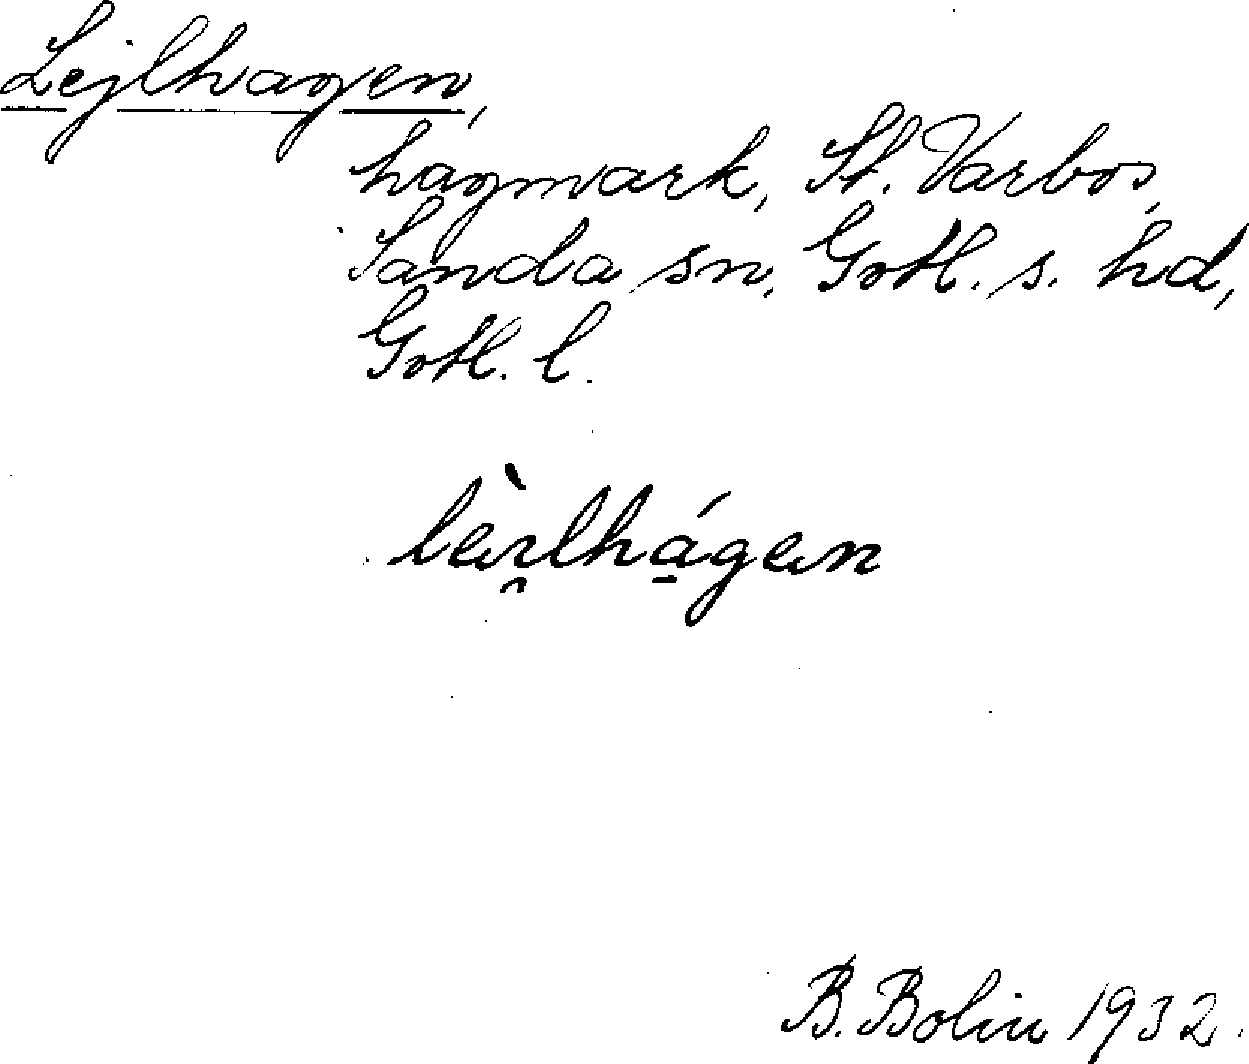 Lejlhagen,
hagmark, St. Varbos,
Sanda sn, Gotl. s. hd,
Gotl. l.
B. Bolin 1932.